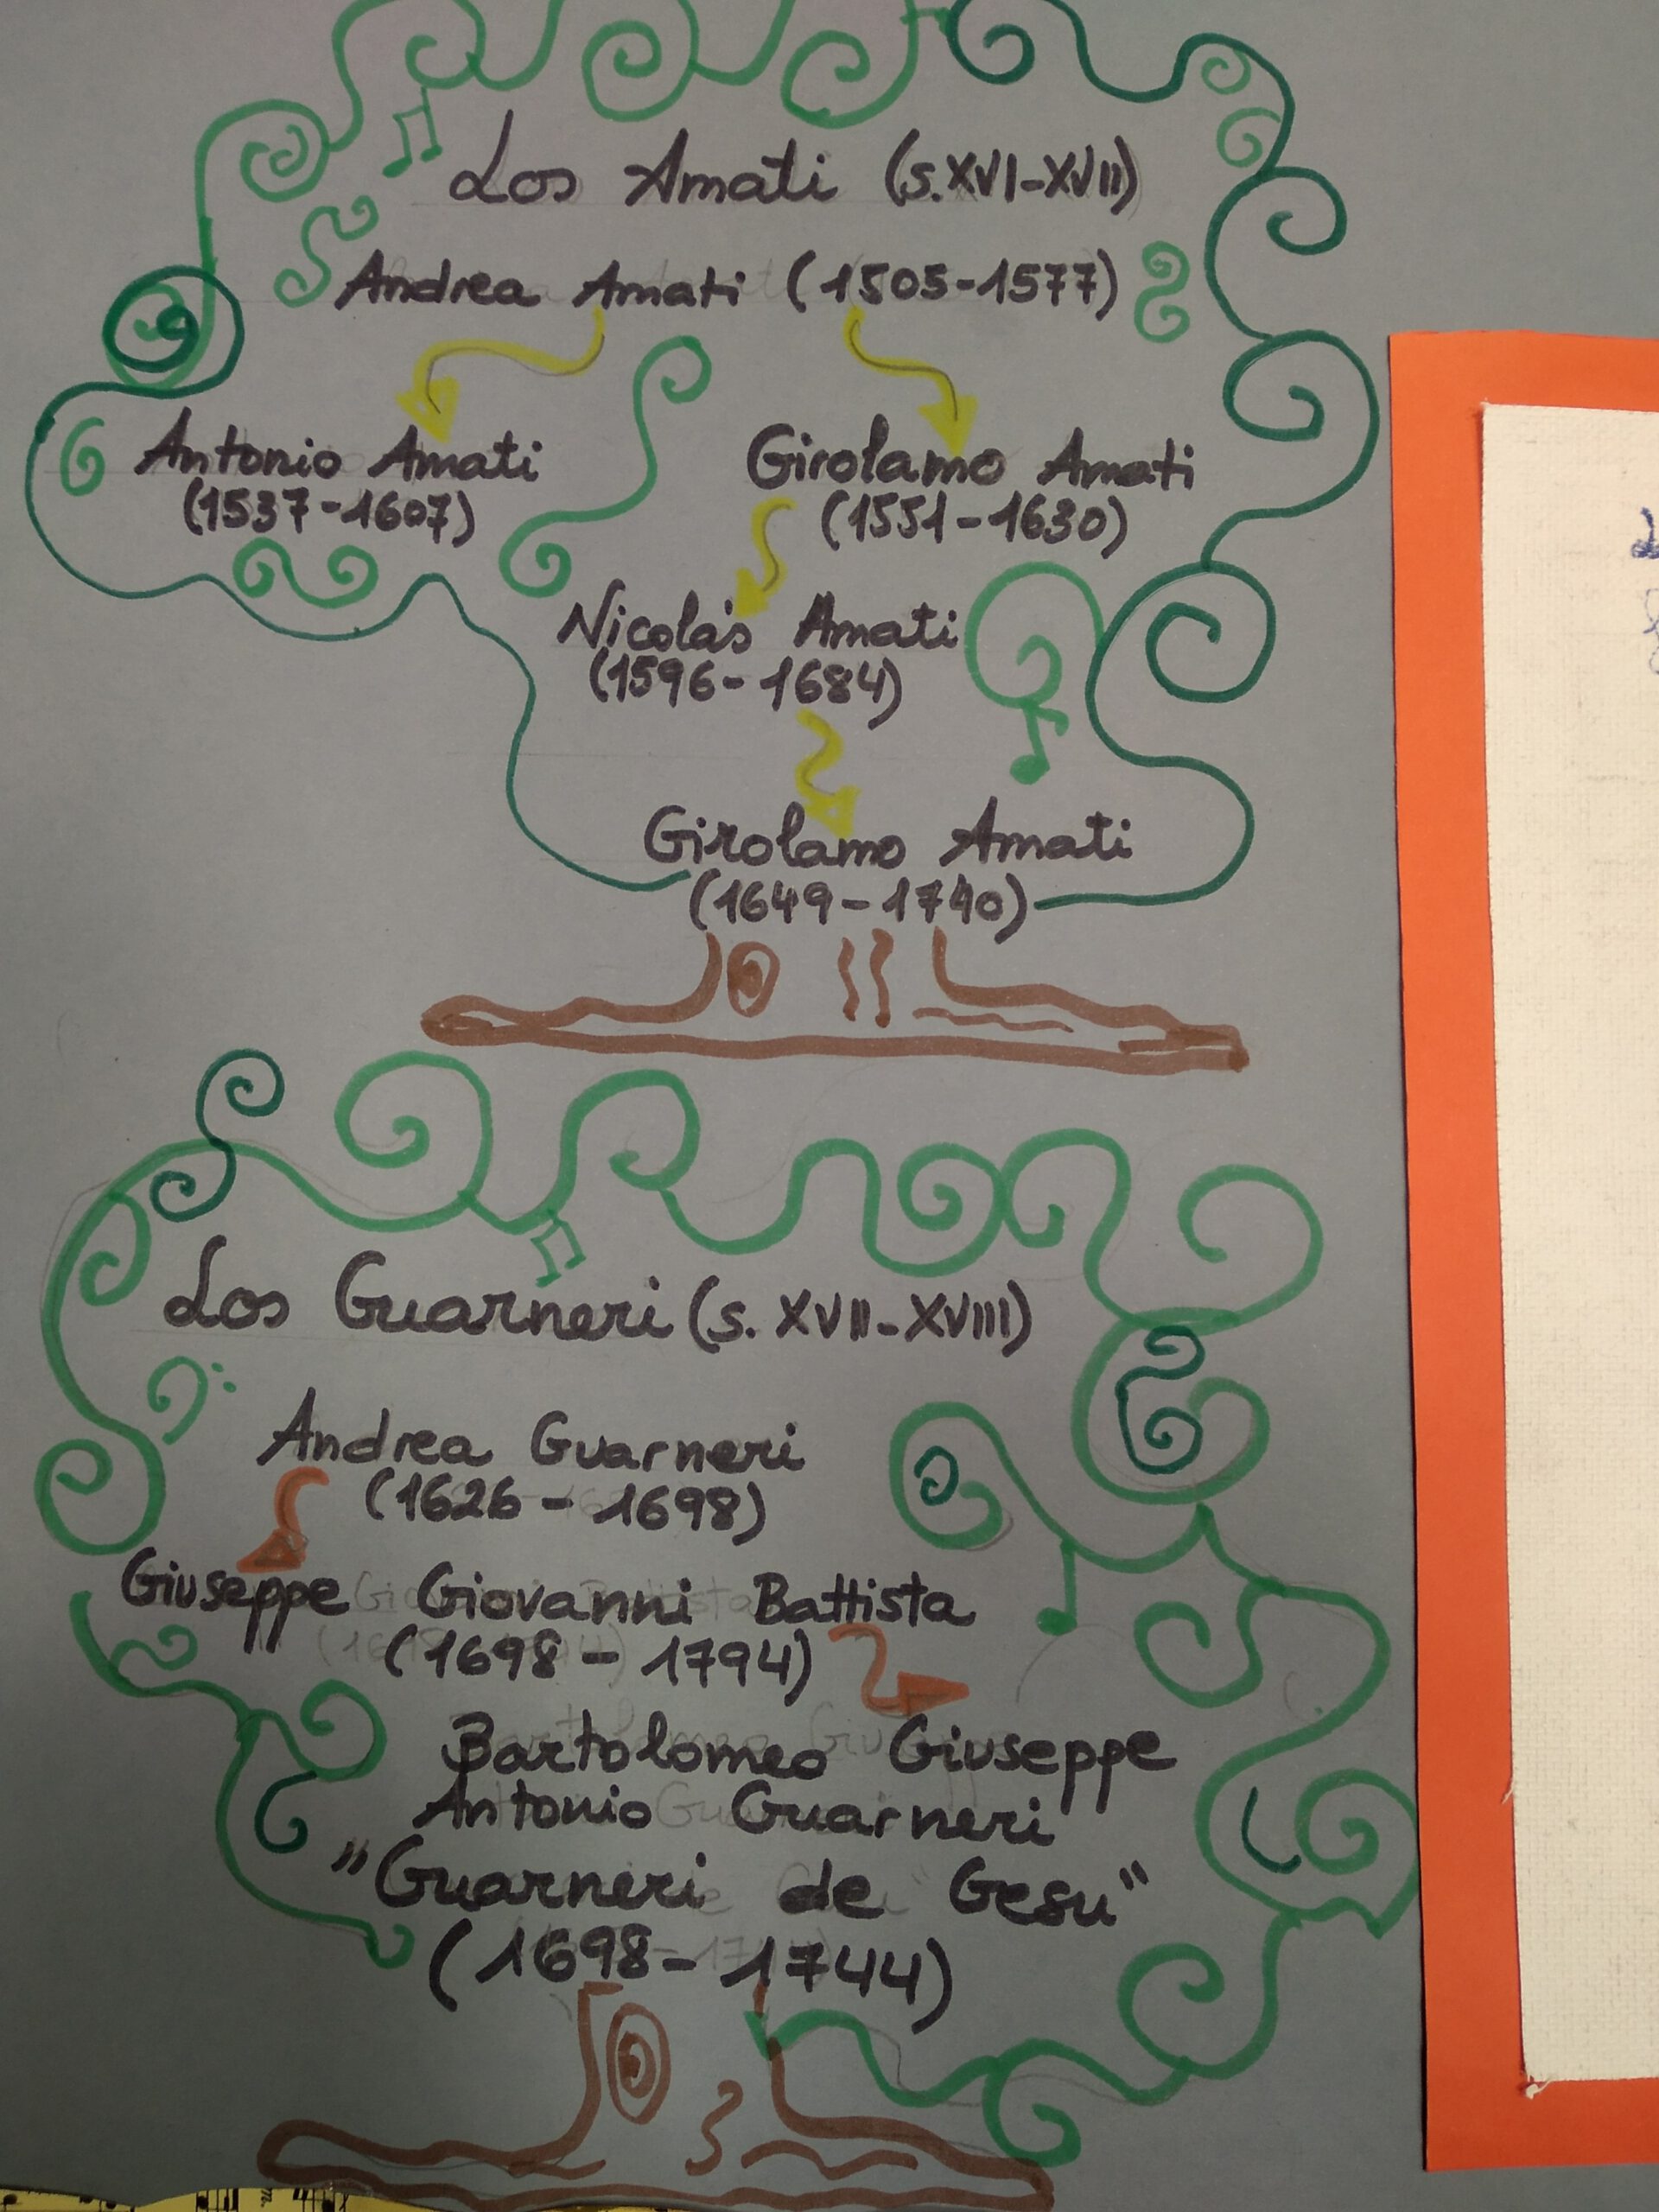 Los Amati (s.XVI-XVII)
Andrea Amati (1505-1577)
Antonio Amati
(1537-1607)
Girolamo Amati
(1551-1630)
Nicolás Amati
(1596-1684)
Girolamo Amati
(1649-1740)
Los Guarneri (s. XVII-XVIII)
Andrea Guarneri
(1626-1698)
Giuseppe Giovanni Battista
(1698-1794)
Bartolomeo Giuseppe
Antonio Guarneri
"Guarneri de Gesu"
(1698-1744)